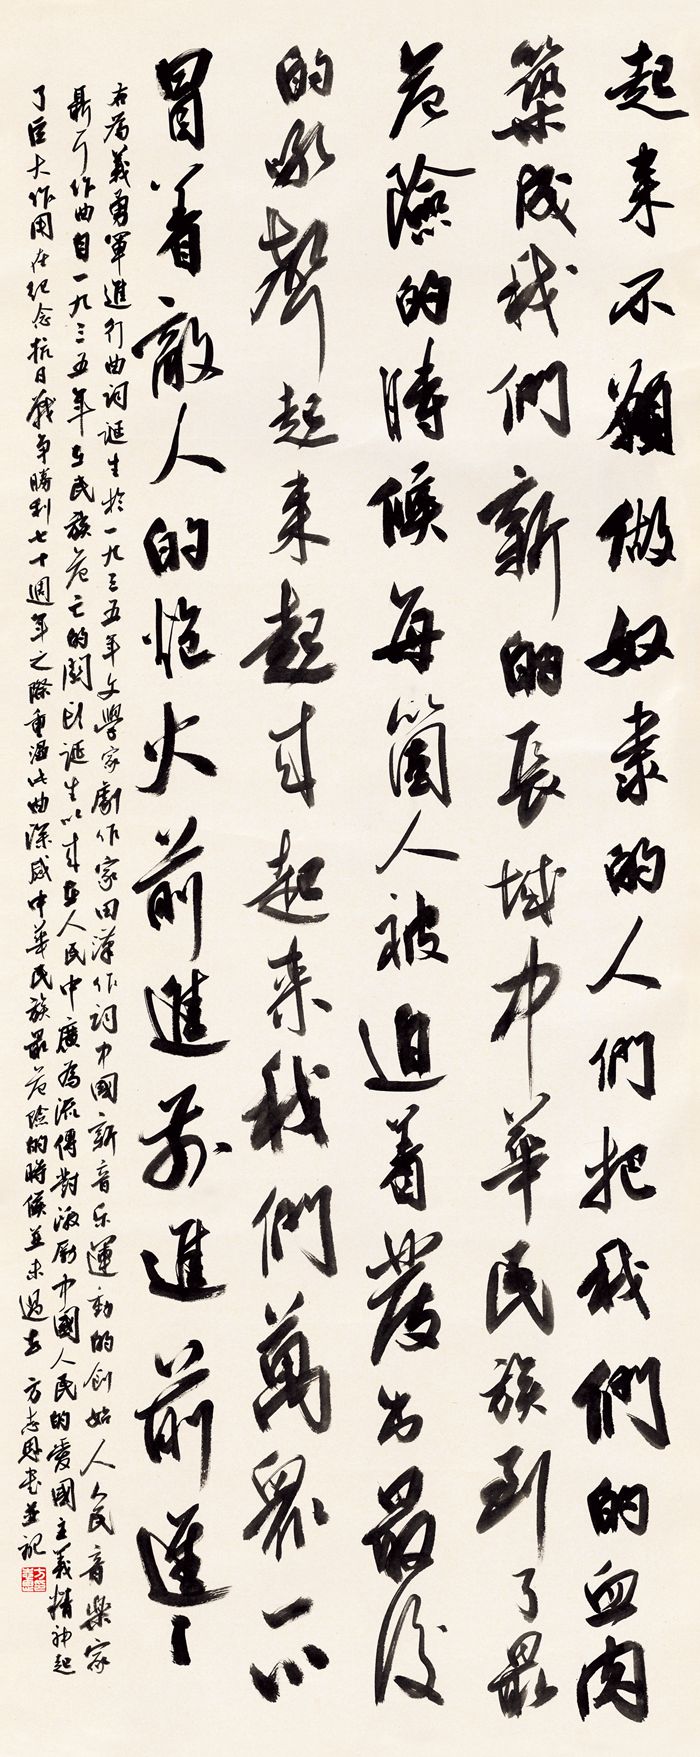 起来不願做奴隸的人們把我們的血肉
築成我們新的長城中華民族到了最
危險的時候每箇人被迫着發出最後
的吼聲起来起来起来我們萬眾一心
冒着敵人的炮火前進前進前進
右為義勇軍進行曲詞誕生於一九三五年文學家劇作家田漢作詞中國新音乐運動的創始人人民音樂家
聶耳作曲自一九三五年在民族危亡的關頭誕生以来在人民中廣為流傳對激勵中國人民的愛國主義精神起
了巨大作用在紀念抗日戰爭勝利七十週年之際重溫此曲深感中華民族最危險的時候並未過去 方志恩書並記